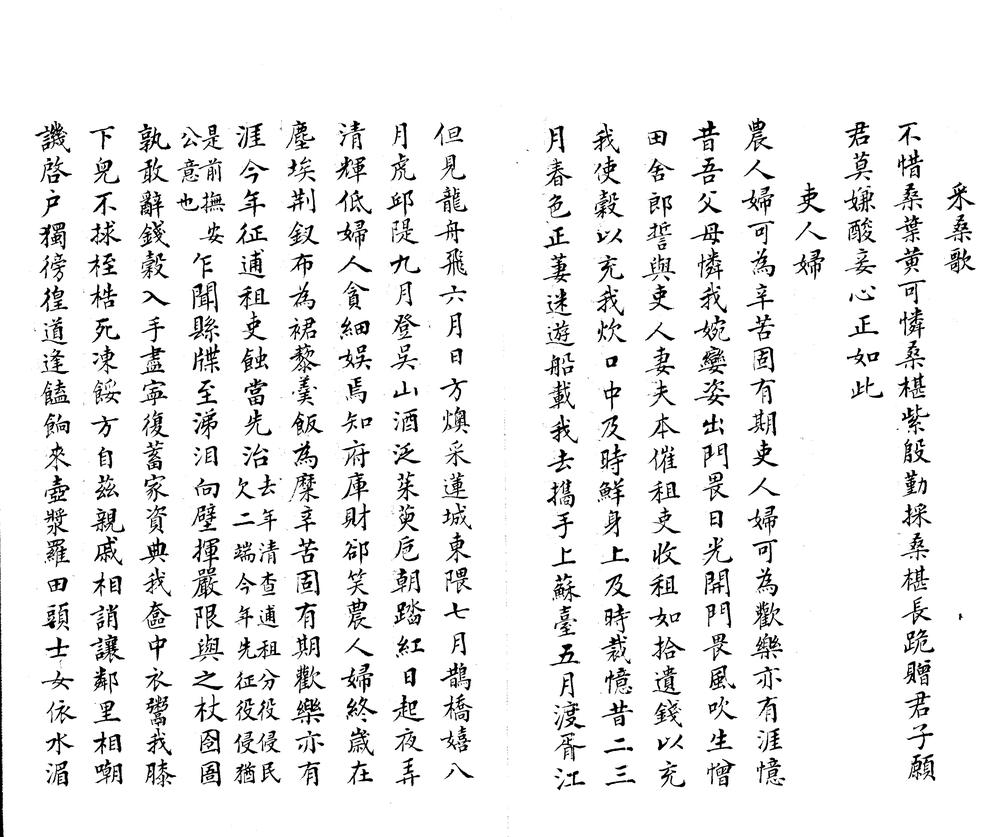 采桑歌
不惜桑葉黄可憐桑椹紫殷勤採桑椹長跪贈君子願
君莫嫌酸妾心正如此
吏人婦
農人婦可為辛苦固有期吏人婦可為歡樂亦有涯憶
昔吾父母憐我婉孌姿出門畏日光開門畏風吹生憎
田舍郎誓與吏人妻夫本催租吏收租如拾遺錢以充
我使穀以充我炊口中及時鮮身上及時裁憶昔二三
月春色正萋迷遊船載我去攜手上蘇臺五月渡胥江
但見龍舟飛六月日方燠采蓮城東隈七月鵲橋嬉八
月虎邱隄九月登吳山酒泛茱萸卮朝踏紅日起夜弄
清輝低婦人貪細娛焉知府庫財卻笑農人婦終歲在
塵埃荆釵布為裙藜羹飯為糜辛苦固有期歡樂亦有
涯今年征逋租吏蝕當先治去年清查逋租分役侵民欠二端今年先征役侵猶
是前撫安公意也乍聞縣牒至涕泪向壁揮嚴限與之杖囹圄
孰敢辭錢穀入手盡寧復蓄家資典我奩中衣鬻我膝
下兒不捄桎梏死凍餒方自茲親戚相誚讓鄰里相嘲
譏啓户獨徬徨道逢饁餉來壺漿羅田頭士女依水湄